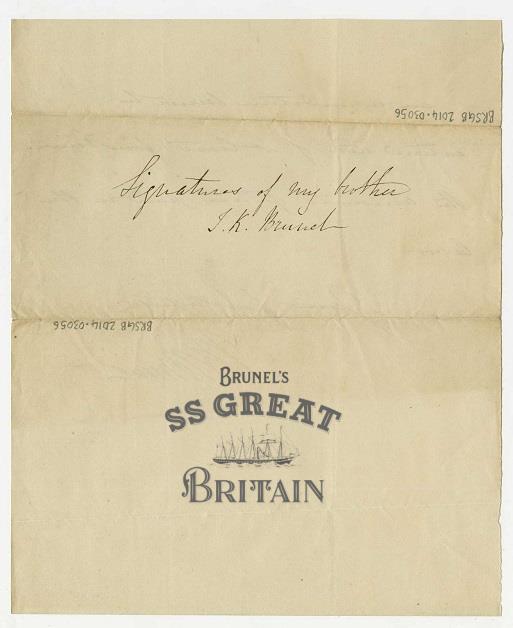 BRSGB 2014.03056
Signatures of my brother
I. K. Brunel
BRSGB 2014.03056
BRUNEL'S
SS GREAT
BRITAIN